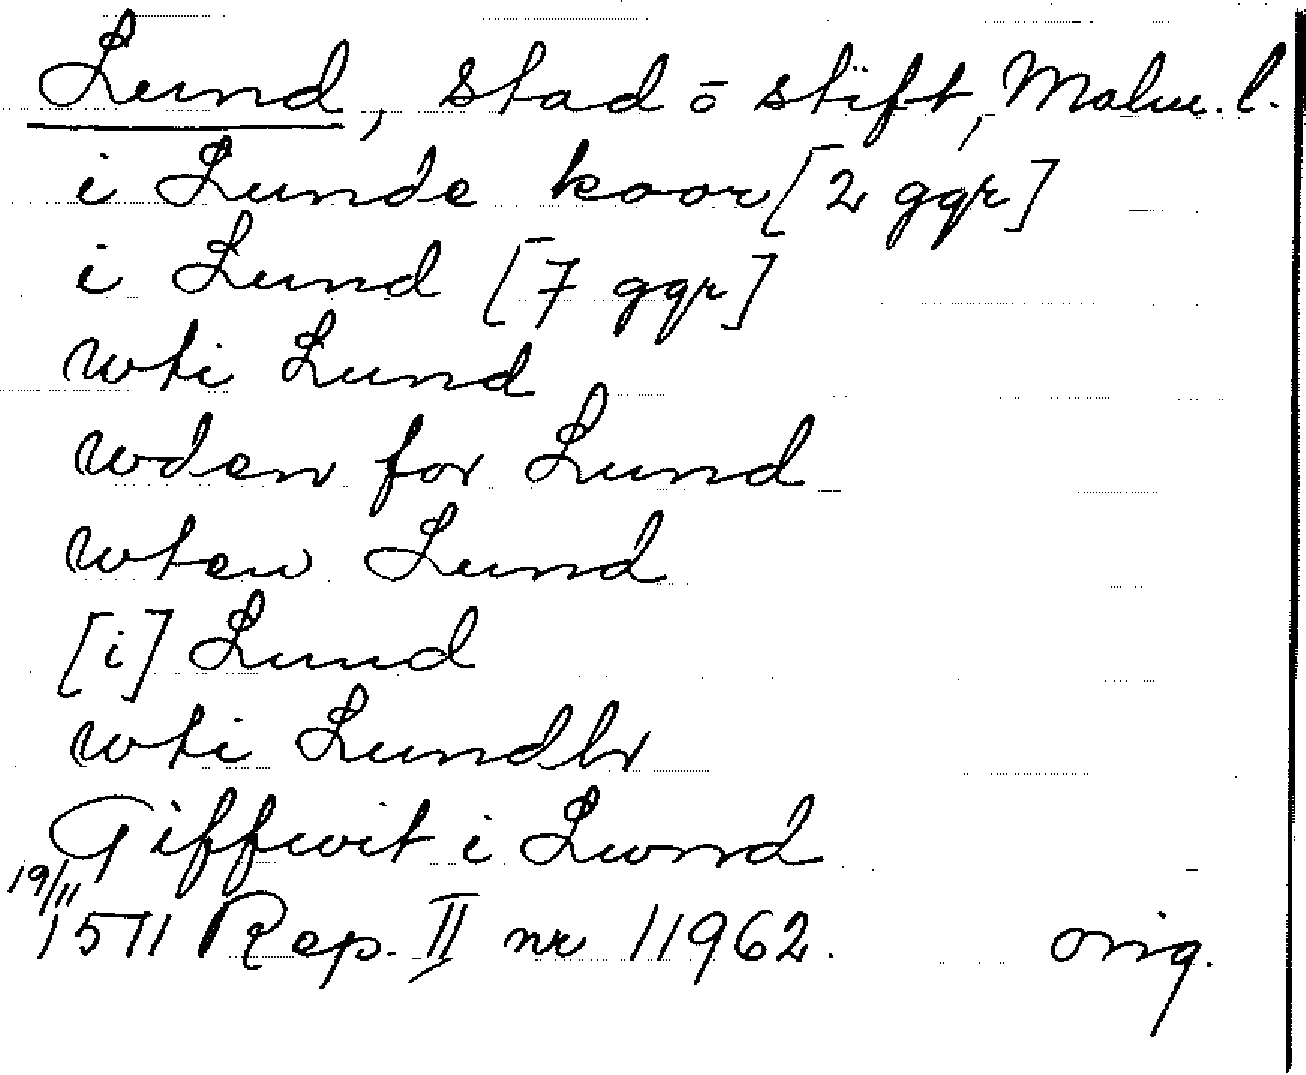 Lund, stad o stift, Malm. l.
i Lunde koor [2 ggr]
i Lund [7 ggr]
wti Lund
wden for Lund
wten Lund
[i] Lund
wti Lundh
Giffwit i Lwnd
19/11
1511 Rep. II nr 11962. orig.